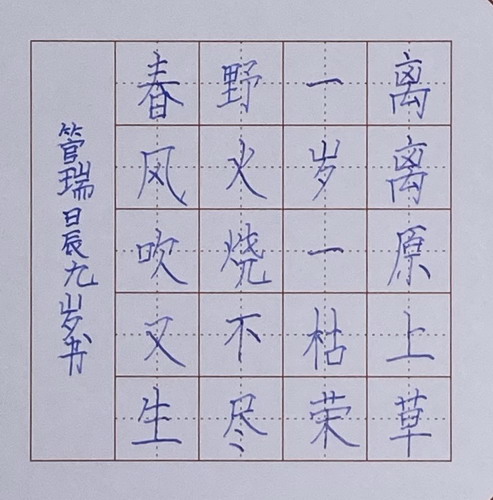 离离原上草
一岁一枯荣
野火烧不尽
春风吹又生
管瑞日辰九岁书